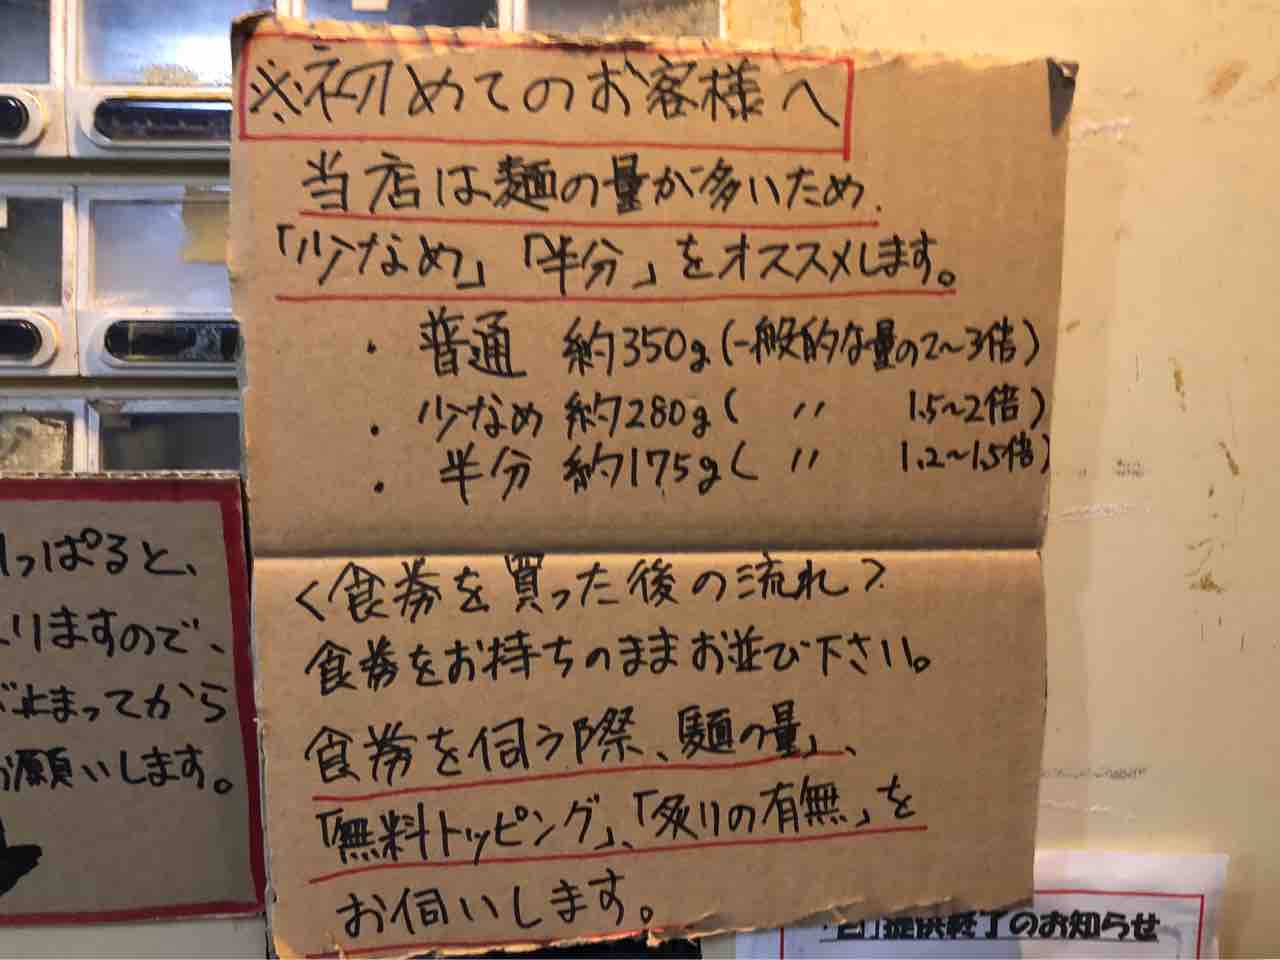 ※初めてのお客様へ
当店は麺の量が多いため、
「少なめ」「半分」をオススメします。
・普通 約350g(一般的な量の2〜3倍)
・少なめ 約280g( 〃 1.5〜2倍)
・半分 約175g( 〃 1.2〜1.5倍)
<食券を買った後の流れ>
食券をお持ちのままお並び下さい。
食券を伺う際、「麺の量」、
「無料トッピング」、「炙りの有無」を
お伺いします。
っぱると、
りますので、
止まってから
お願いします。
提供終了のお知らせ